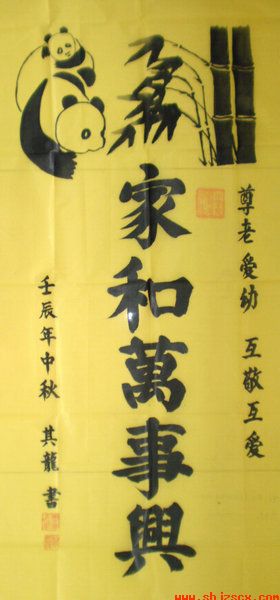 尊老愛幼 互敬互愛
家和萬事興
壬辰年中秋 其龍書
www.shjzscx.com